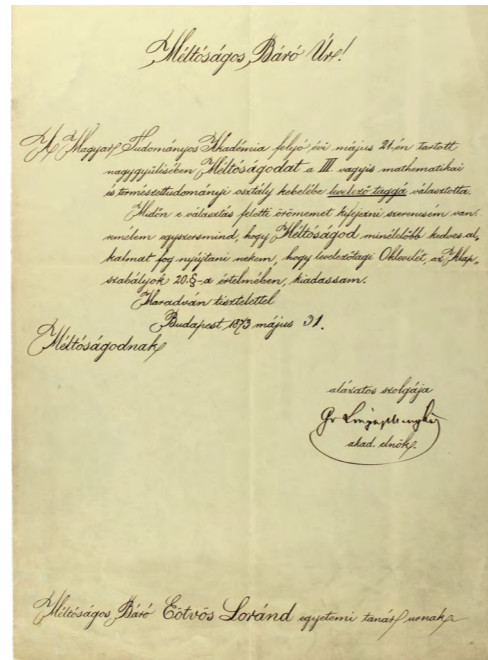 Méltóságos Báró Úr!
A Magyar Tudományos Akadémia folyó évi május 21-én tartott
nagygyülésében Méltóságodat a III. vagyis mathematikai
és természettudományi osztály kebelébe levelező taggá választotta.
Midőn e választás feletti örömemet kifejezni szerencsém van
remélem egyszersmind, hogy Méltóságod minélelőbb kedves al-
kalmat fog nyújtani nekem, hogy levelezőtagi Oklevelét, az Alap-
szabályok 20.§-a értelmében, kiadassam.
Maradván tisztelettel
Budapest, 1873 május 31.
Méltóságodnak
alázatos szolgája
Gr Lónyay Menyhért
akad. elnök.
Méltóságos Báró Eötvös Loránd egyetemi tanár urnak